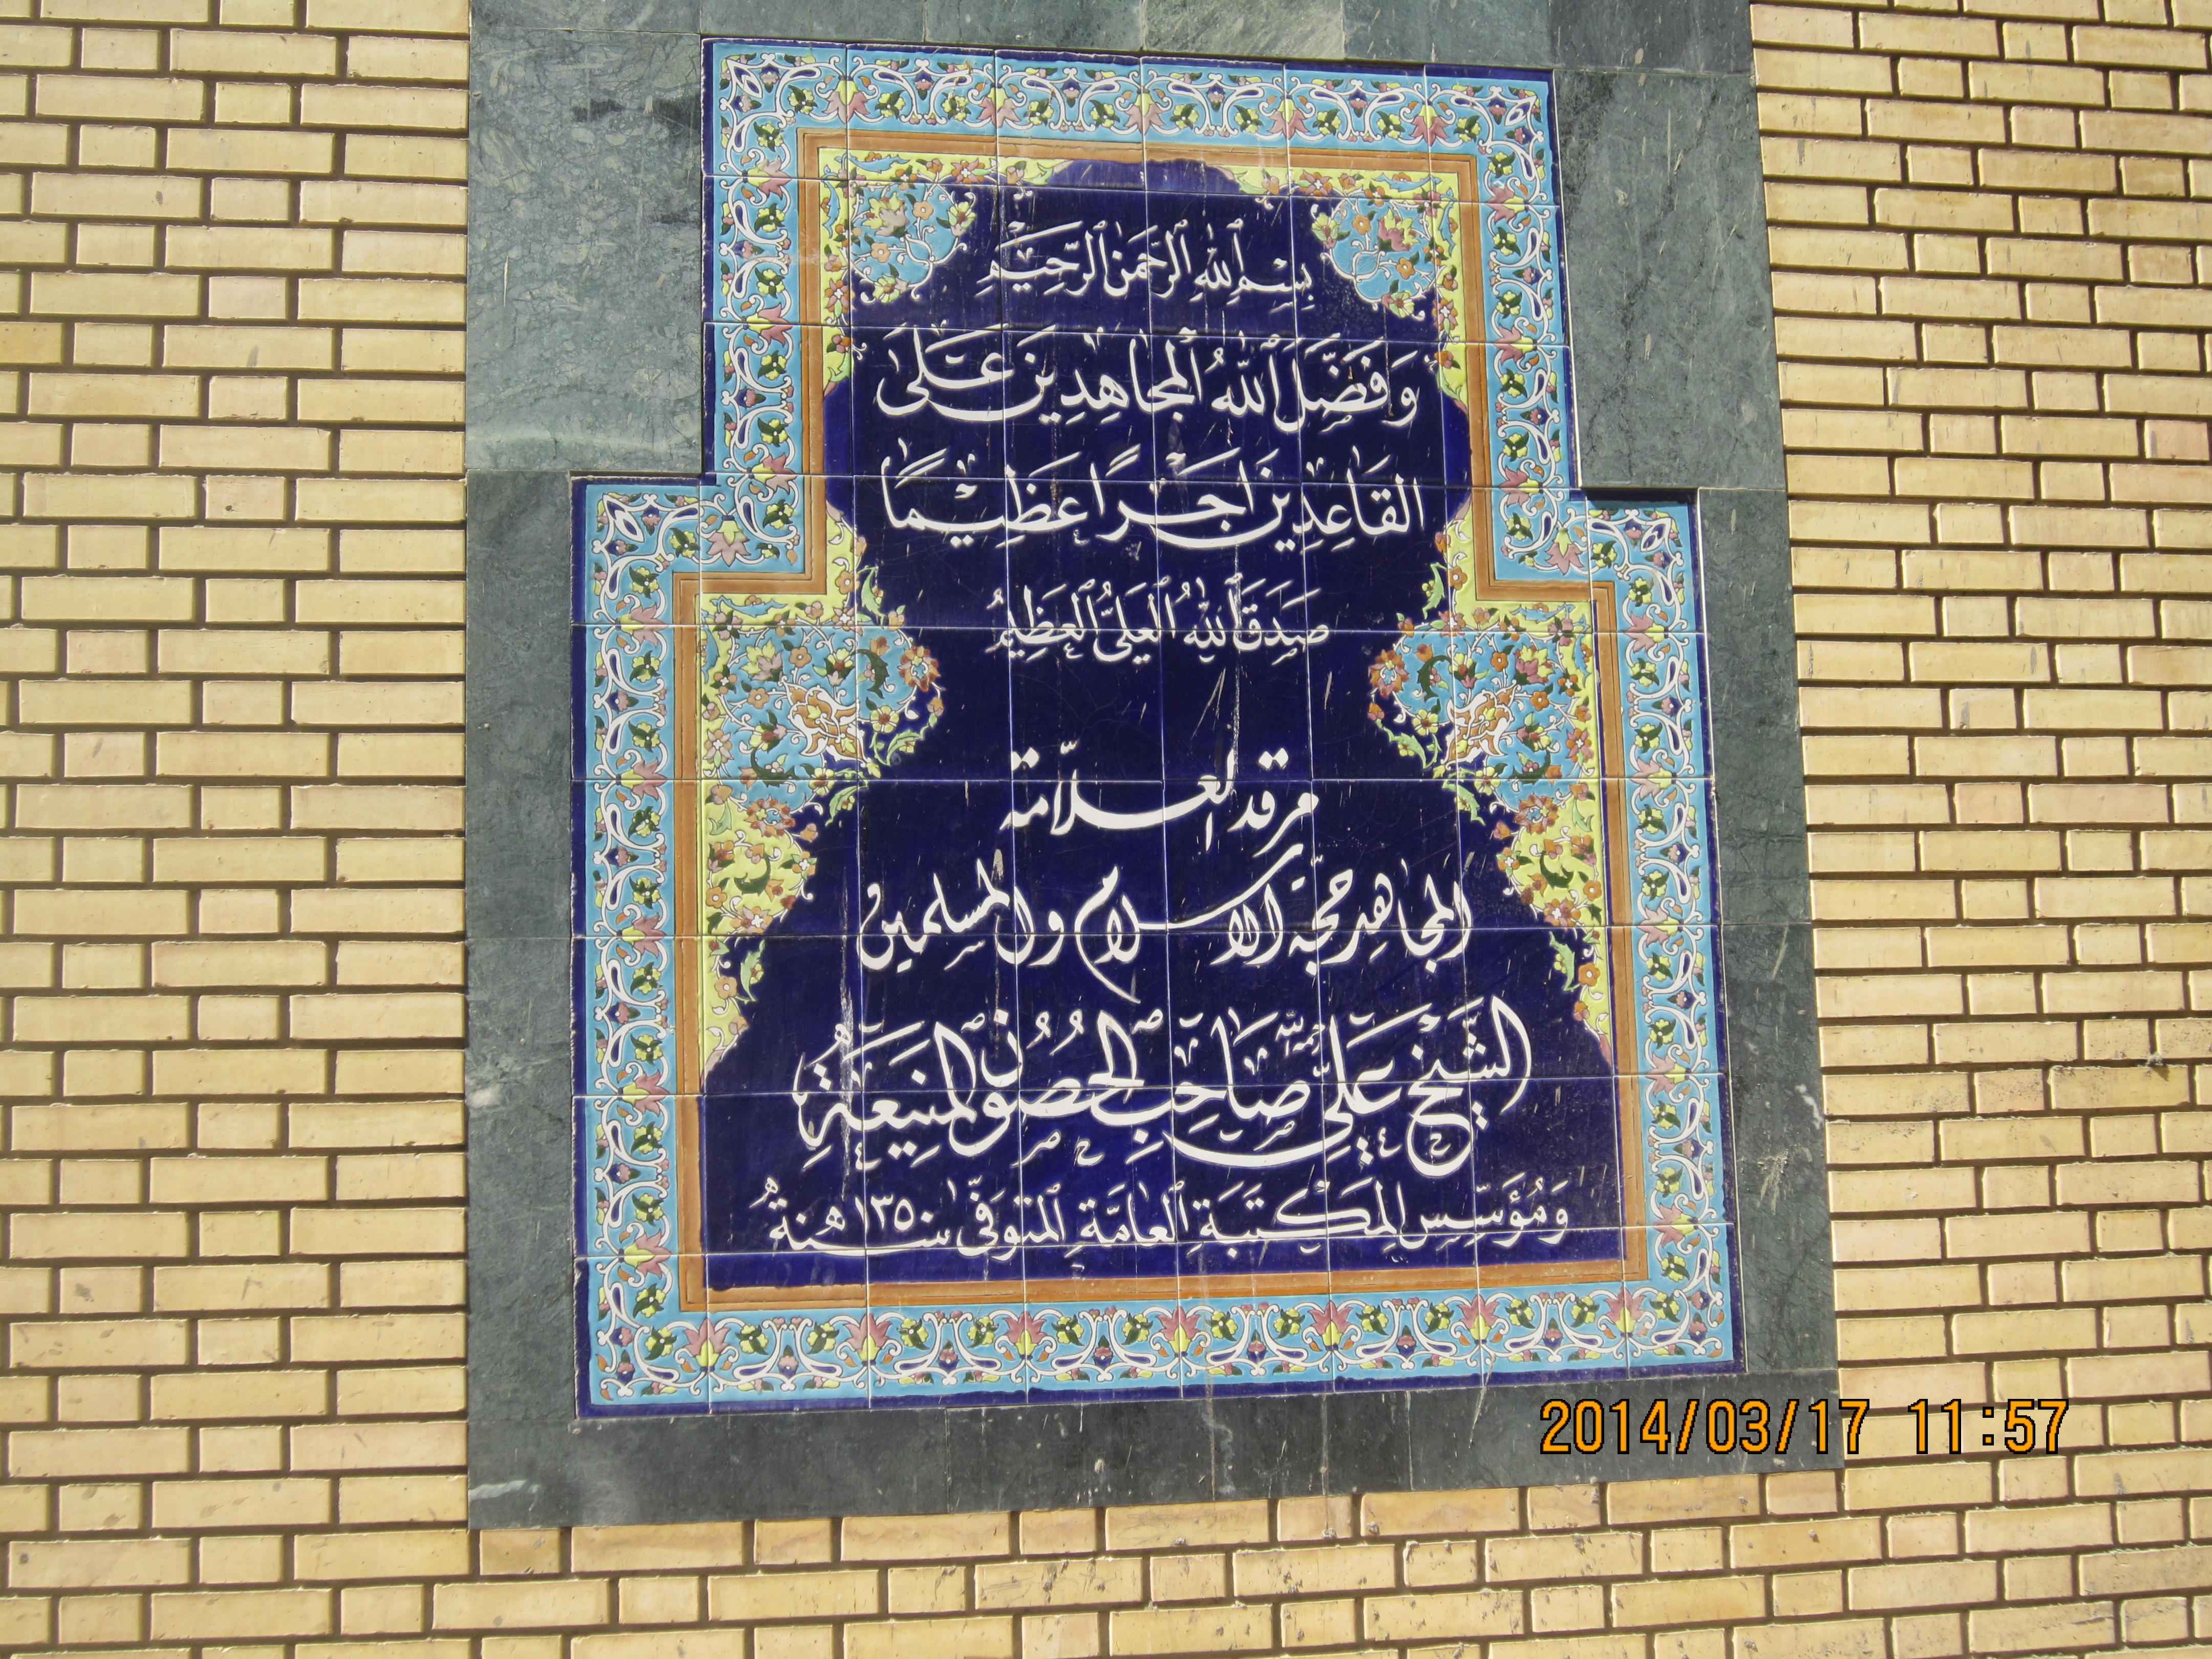 بِسْمِ ٱللهِ ٱلرَّحْمَنِ ٱلرَّحِيْمِ
وَفَضَّلَ ٱللهُ ٱلْمجَاهِدِينَ عَلَى
القَاعِدِينَ اَجْرًا عَظِيمًا
صَدَقَ ٱللهُ ٱلْعَلِيُّ ٱلْعَظِيمُ
مرقد العلّامة
المجاهد حجّة الاسلام والمسلمين
الشَّيْخ عَلِيّ صَاحِبِ الحُصُونِ المَنِيعَةِ
وَمُؤَسِّسِ المَكْتَبَةِ ٱلْعَامَّةِ ٱلْمتَوَفَّىٰ سنة ١٣٥٠ هـ
2014/03/17 11:57